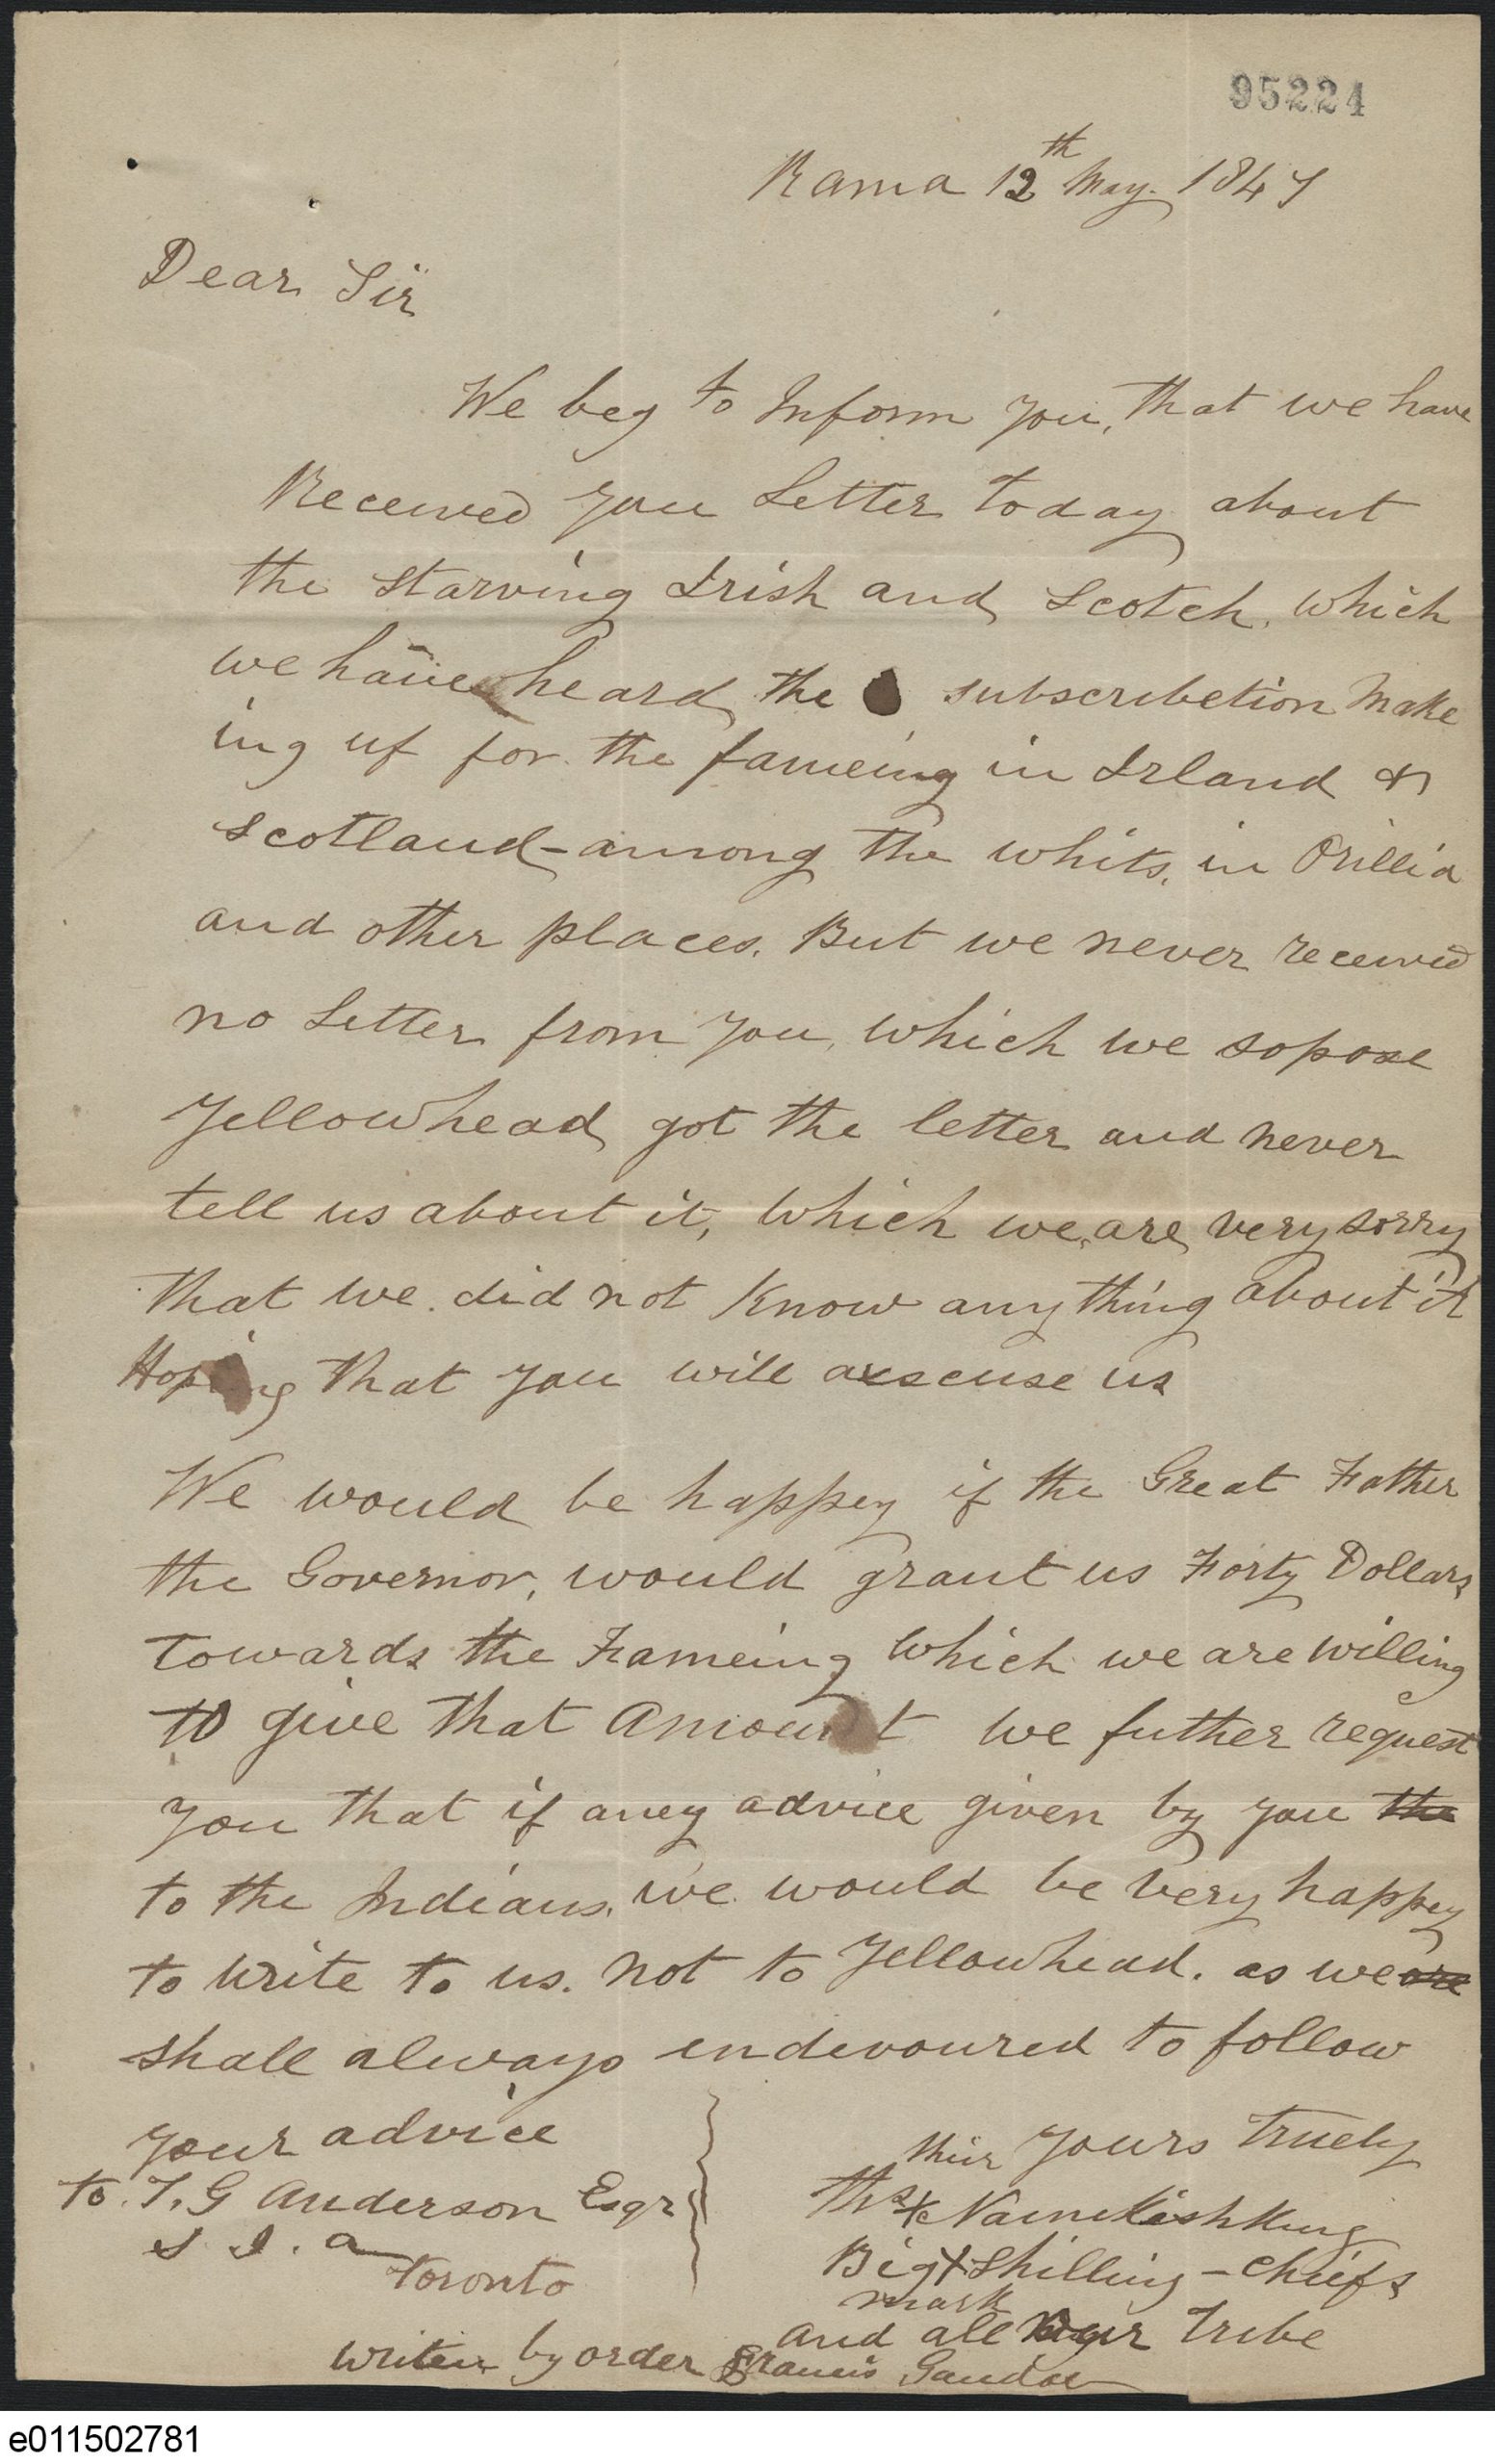 95224
Rama 12th May. 1847
Dear Sir
We beg to Inform you, that we have
Received you Letter today about
the starving Irish and Scotch, which
we have heard the subscribetion Make
ing up for the fameing in Irland &
Scotland - among the whits, in Orillia
and other places. But we never received
no Letter from you, which we sopose
Yellowhead got the letter and never
tell us about it, which we are very sorry
that we did not Know any thing about it
Hoping that you will axscuse us
We would be happey if the Great Father
the Governor, would grant us Forty Dollars
towards the Fameing which we are willing
to give that Amount we futher request
you that if aney advice given by you the
to the Indians, we would be very happey
to write to us. not to Yellowhead. as we are
shall always endevoured to follow
your advice
thier Yours Truely
to. T. G Anderson Esqr
S. I. a
Toronto
Ths x Nainekishkung
Big x Shilling - Chiefs
mark
and all our Tribe
writen by order Francis Gaudaur
e011502781